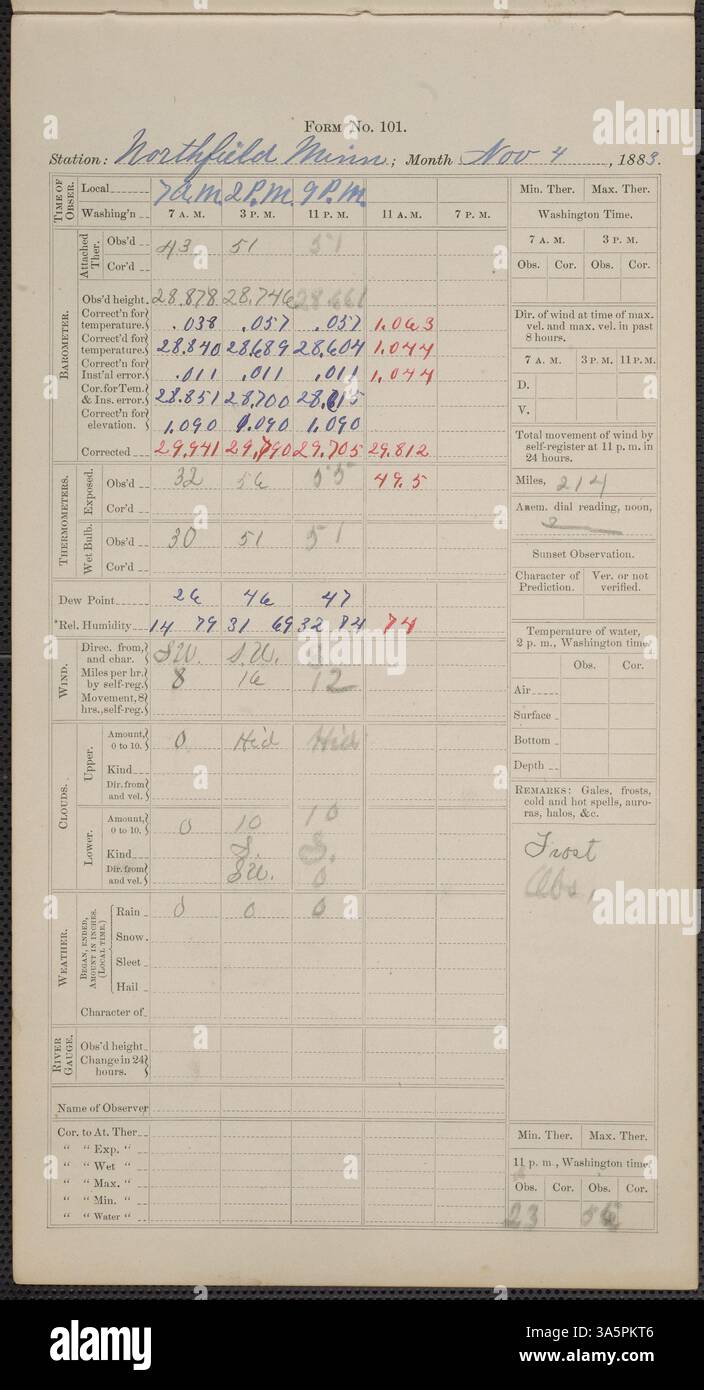 Form No. 101.
Station: Northfield Minn; Month Nov 4, 1883.
Time of Obser. Local 7 A.M. 2 P.M. 9 P.M.
Washing'n 7 A. M. 3 P. M. 11 P. M. 11 A. M. 7 P. M.
Barometer.
Attached Ther. Obs'd 43 51 51
Cor'd
Obs'd height. 28.878 28.746 28.661
Correct'n for temperature. .038 .057 .057 1.063
Correct'd for temperature. 28.840 28.689 28.604 1.044
Correct'n for Inst'al error. .011 .011 .011 1.044
Cor. for Tem. & Ins. error. 28.851 28.700 28.615
Correct'n for elevation. 1.090 1.090 1.090
Corrected 29.941 29.790 29.705 29.812
Thermometers.
Exposed. Obs'd 32 56 55 49.5
Cor'd
Wet Bulb. Obs'd 30 51 51
Cor'd
Dew Point 26 46 47
*Rel. Humidity 14 79 31 69 32 74 74
Wind.
Direc. from, and char. S.W. S.W.
Miles per hr. by self-reg. 8 16 12
Movement, 8 hrs., self-reg.
Clouds.
Upper. Amount, 0 to 10. 0 Hid Hid
Kind
Dir. from and vel.
Lower. Amount, 0 to 10. 0 10 10
Kind S. S.
Dir. from and vel. S.W. 0
Weather.
Began, ended, amount in inches. (Local time.)
Rain 0 0 0
Snow.
Sleet
Hail
Character of
River Gauge. Obs'd height
Change in 24 hours.
Name of Observer
Cor. to At. Ther
" " Exp. "
" " Wet "
" " Max. "
" " Min. "
" " Water "
Min. Ther. Max. Ther.
Washington Time.
7 A. M. 3 P. M.
Obs. Cor. Obs. Cor.
Dir. of wind at time of max. vel. and max. vel. in past 8 hours.
7 A. M. 3 P. M. 11 P. M.
D.
V.
Total movement of wind by self-register at 11 p. m. in 24 hours.
Miles, 214
Anem. dial reading, noon,
Sunset Observation.
Character of Prediction. Ver. or not verified.
Temperature of water, 2 p. m., Washington time.
Obs. Cor.
Air
Surface
Bottom
Depth
Remarks: Gales, frosts, cold and hot spells, auroras, halos, &c.
Frost
Obs.
Min. Ther. Max. Ther.
11 p. m., Washington time.
Obs. Cor. Obs. Cor.
23 56
alamy
Image ID: 3A5PKT6
www.alamy.com